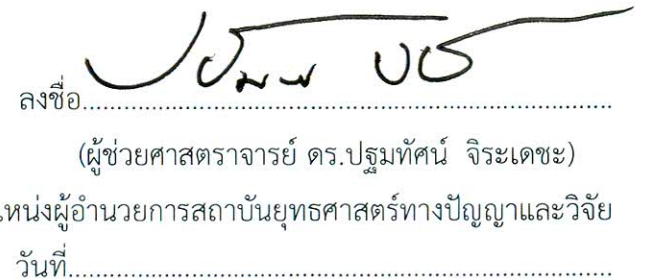 ลงชื่อ........................................................................
(ผู้ช่วยศาสตราจารย์ ดร.ปฐมทัศน์ จิระเดชะ)
แหน่งผู้อำนวยการสถาบันยุทธศาสตร์ทางปัญญาและวิจัย
วันที่........................................................................